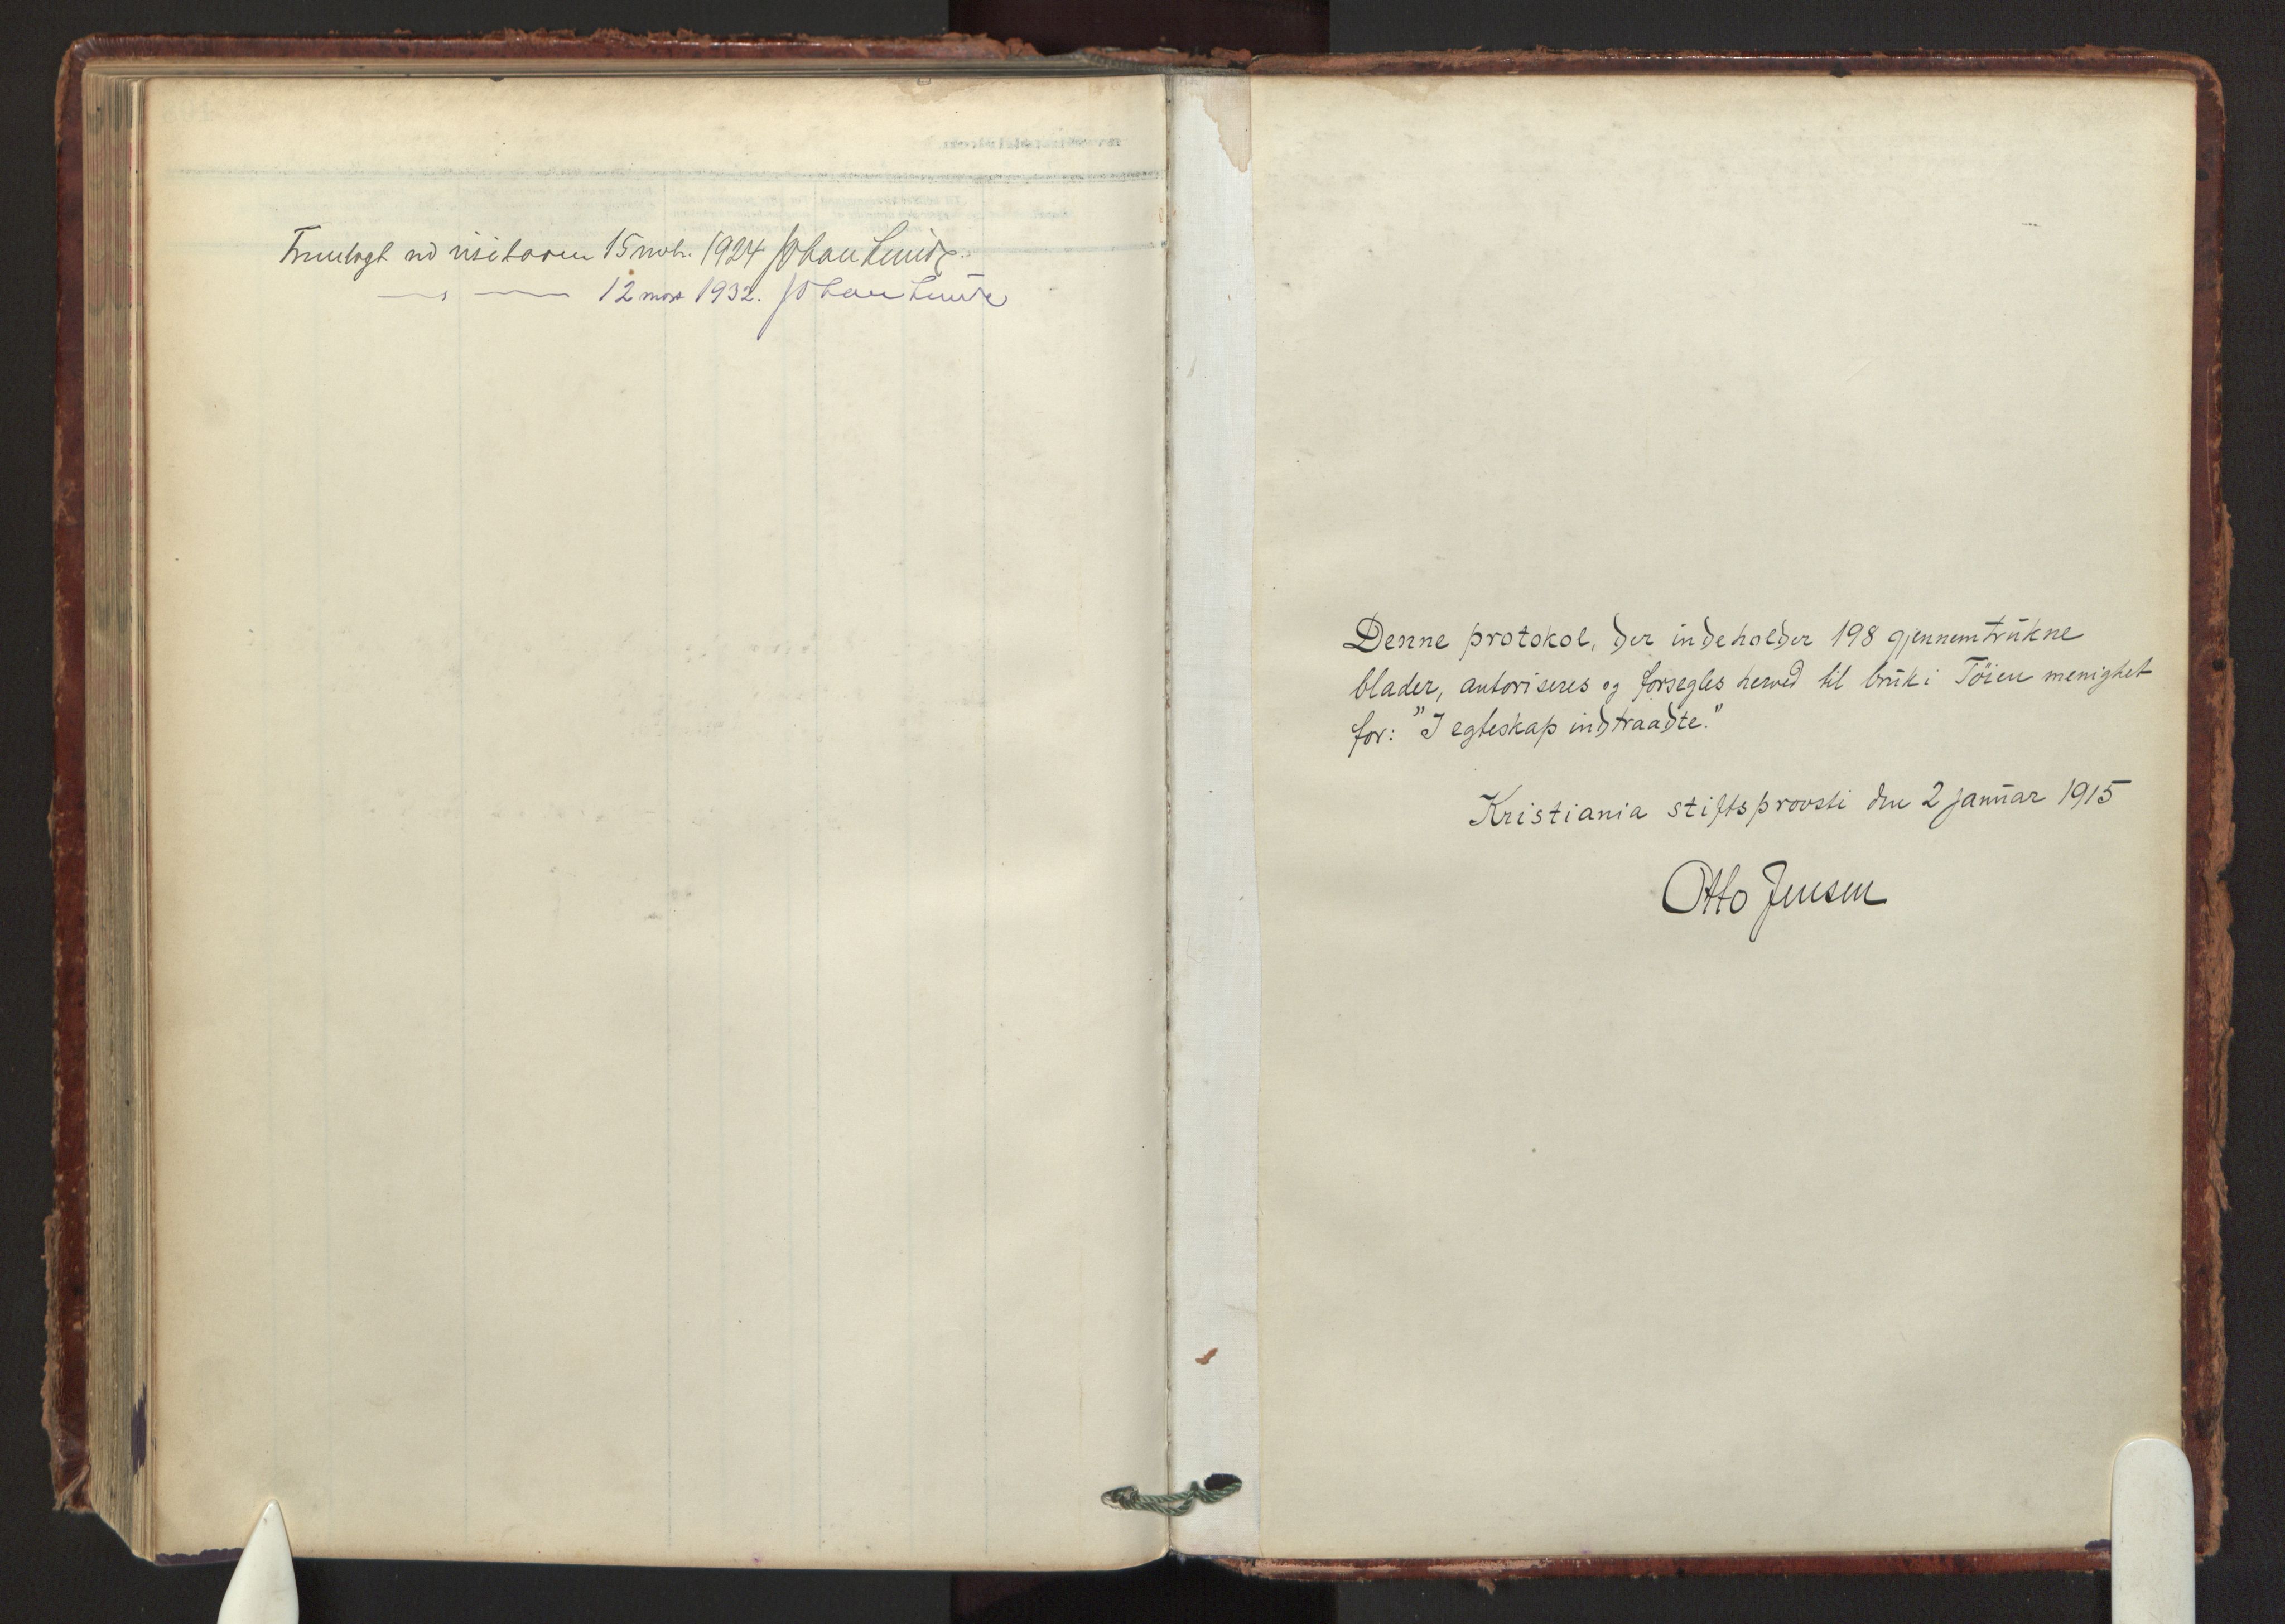 Fremlagt ved visitasen 15 novb. 1924 Johan Lunde.
— " — 12 mars 1932. Johan Lunde
Denne protokol, der indeholder 198 gjennemtrukne
blader, autoriseres og forsegles herved til bruk i Töien menighet
for: "I egteskap indtraadte."
Kristiania stiftsprovsti den 2 januar 1915
Otto Jensen